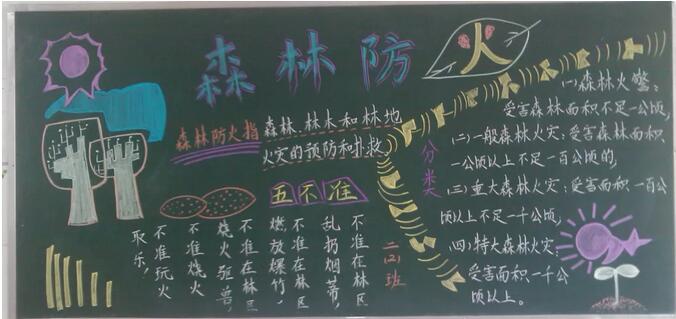 森林防火
森林防火指
森林、林木和林地
火灾的预防和扑救
五不准
不准在林区
乱扔烟蒂,
不准在林区
燃放爆竹,
不准在林区
烧火驱兽,
不准烧火
不准玩火
取乐,
二(2)班
分类
(一)森林火警:
受害森林面积不足一公顷,
(二)一般森林火灾:受害森林面积
一公顷以上不足一百公顷的,
(三)重大森林火灾:受害面积一百公
顷以上不足一千公顷,
(四)特大森林火灾:
受害面积一千公
顷以上。